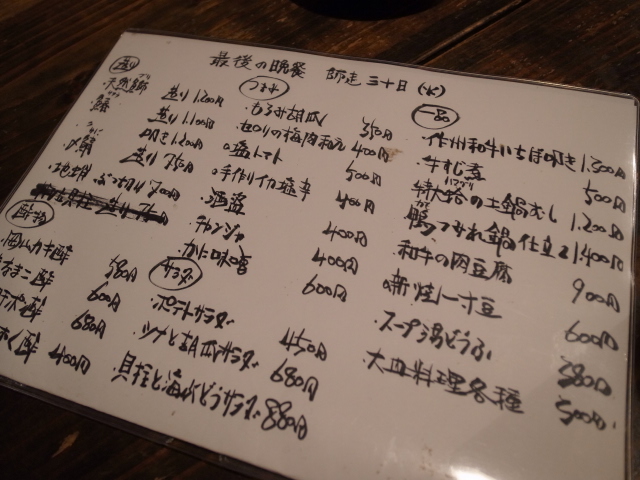 最後の晩餐 師走三十日(水)
造り
天然鰤 造り 1,200円
造り 1,100円
〆鯖 叩き 1,200円
造り 750円
地蛸 ぶつ切り 700円
酢物
岡山カキ酢 580円
なまこ酢 600円
ポン酢 680円
酢 400円
つまみ
・もろみ胡瓜 350円
・セロリの梅肉和え 400円
塩トマト 500円
手作りイカ塩辛 400円
・酒盗 400円
・チャンジャ 400円
・かに味噌 600円
サラダ
・ポテトサラダ 450円
・ツナと胡瓜サラダ 680円
・貝柱と海水どうふサラダ 880円
一品
・作州和牛いちぼ叩き 1,300円
・牛すじ煮 500円
・特大蛤の土鍋むし 1,200円
ハマグリ
・鴨つみれ鍋仕立て 1,400円
・和牛の肉豆腐 900円
一寸豆 600円
・スープ湯どうふ 380円
・大皿料理各種 500円